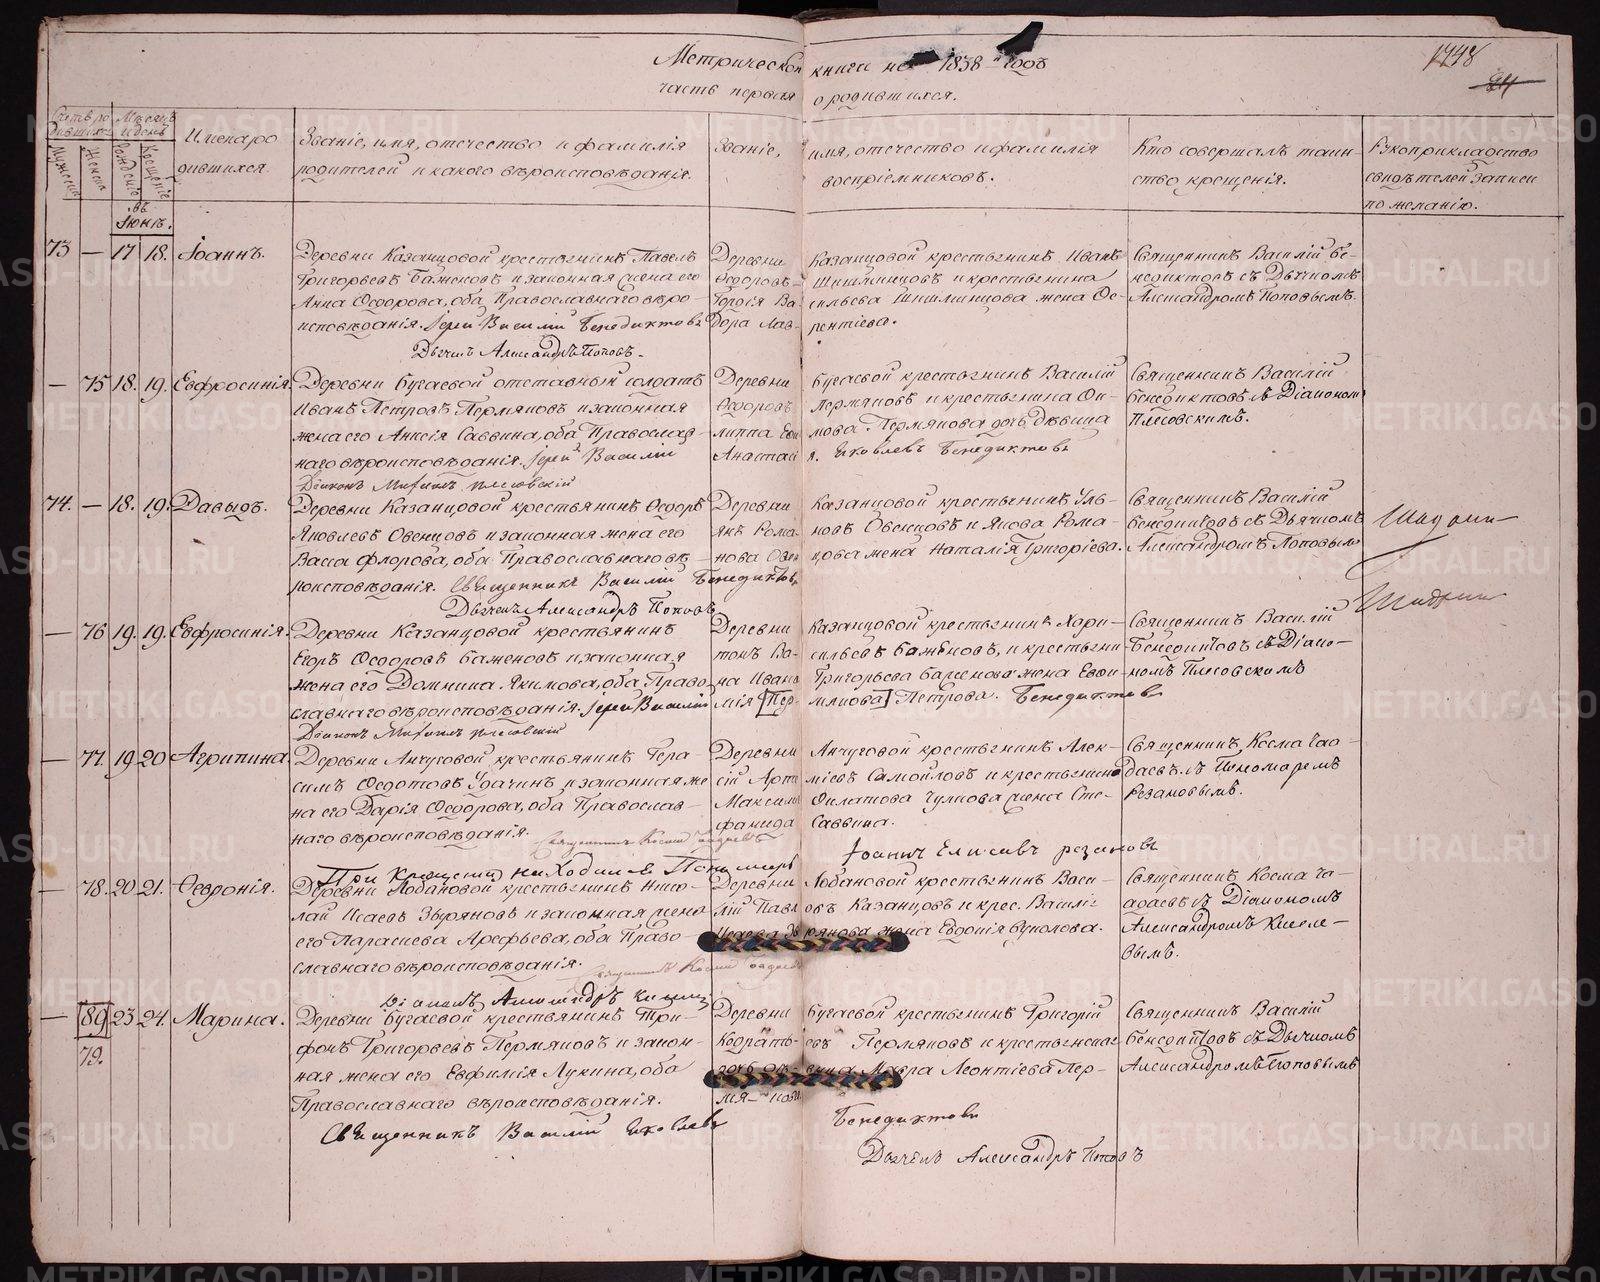 Метрической книги на 1838 годъ
часть первая о родившихся.
1748
Счетъ родившихся
Мужеска
Женска
Мѣсяцъ и день
Рожденія
Крещенія
Имена родившихся.
Званіе, имя, отечество и фамилія
родителей и какого вѣроисповѣданія.
Званіе, имя, отечество и фамилія
воспріемниковъ.
Кто совершалъ таин-
ство крещенія.
Рукоприкладство
свидѣтелей записи
по желанію.
въ
Іюнѣ.
73 — 17 18. Іоаннъ.
Деревни Казанцовой крестьянинъ Павелъ
Григорьевъ Баженовъ и законная жена его
Анна Ѳедорова, оба Православнаго вѣро-
исповѣданія. Іерей Василій Бенедиктовъ
Дьячекъ Александръ Поповъ.
Деревни Казанцовой крестьянинъ Иванъ
Ѳедоровъ Шишминцовъ и крестьянина
Гордія Васильева Шишминцова жена Ѳе-
дора Лав-рентіева.
Священникъ Василій Бе-
недиктовъ съ Дьячкомъ
Александромъ Поповымъ.
— 75 18. 19. Евфросинія.
Деревни Бугаевой отставный солдатъ
Иванъ Петровъ Пермяковъ и законная
жена его Анисія Саввина, оба Православ-
наго вѣроисповѣданія. Іерей Василій
Діаконъ Михаилъ Плесовскій
Деревни Бугаевой крестьянинъ Василій
Ѳедоровъ Пермяковъ и крестьянина Фи-
липпа Пермякова дочь дѣвица
Анастасія. Яковлевъ Бенедиктовъ
Священникъ Василій
Бенедиктовъ съ Діакономъ
Плесовскимъ.
74. — 18. 19. Давыдъ.
Деревни Казанцовой крестьянинъ Ѳедоръ
Яковлевъ Овенцовъ и законная жена его
Васса Флорова, оба Православнаго вѣ-
роисповѣданія. Священникъ Василій Бенедиктовъ
Дьячекъ Александръ Поповъ
Деревни Казанцовой крестьянинъ Уль-
янъ Романовъ Овенцовъ и Якова Рома-
нова Овенцова жена Наталія Григоріева.
Священникъ Василій
Бенедиктовъ съ Дьячкомъ
Александромъ Поповымъ
— 76 19. 19. Евфросинія.
Деревни Казанцовой крестьянинъ
Егоръ Ѳедоровъ Баженовъ и законная
жена его Домнина Якимова, оба Право-
славнаго вѣроисповѣданія. Іерей Василій
Діаконъ Михаилъ Плесовскій
Деревни Казанцовой крестьянинъ Хари-
тонъ Васильевъ Баженовъ, и крестьяни-
на Ивана Григорьева Баженова жена Евфи-
мія [Пермякова] Петрова. Бенедиктовъ
Священникъ Василій
Бенедиктовъ съ Діако-
номъ Плесовскимъ
— 77. 19 20 Агрипина.
Деревни Анчуговой крестьянинъ Гера-
симъ Ѳедотовъ Удачинъ и законная же
на его Дарія Ѳедорова, оба Православ-
наго вѣроисповѣданія.
При крещеніи находился Пономарь
Іоаннъ Елисѣевъ Резановъ
Деревни Анчуговой крестьянинъ Алек-
сій Артеміевъ Самойловъ и крестьянина
Максима Филатова Чулкова жена Сте-
фанида Саввина.
Священникъ Косма Га-
даевъ съ Пономаремъ
Резановымъ.
— 78. 20. 21. Ѳевронія.
Деревни Лобановой крестьянинъ Нико-
лай Исаевъ Зыряновъ и законная жена
его Параскева Арефьева, оба Право-
славнаго вѣроисповѣданія.
Деревни Лобановой крестьянинъ Васи-
лій Павловъ Казанцовъ и крес. Василія
Исаева Зырянова жена Евдокія Вуколова.
Священникъ Косма Га-
даевъ съ Діакономъ
Александромъ Киселе-
вымъ.
— 89 23 24. Марина.
79.
Деревни Бугаевой крестьянинъ Три-
фонъ Григорьевъ Пермяковъ и закон-
ная жена его Евфимія Лукина, оба
Православнаго вѣроисповѣданія.
Священникъ Василій Яковлевъ Бенедиктовъ
Дьячекъ Александръ Поповъ
Деревни Бугаевой крестьянинъ Григорій
Кодратьевъ Пермяковъ и крестьянская
дочь дѣвица Мавра Леонтіева Пер-
мякова
Священникъ Василій
Бенедиктовъ съ Дьячкомъ
Александромъ Поповымъ
METRIKI.GASO-URAL.RU